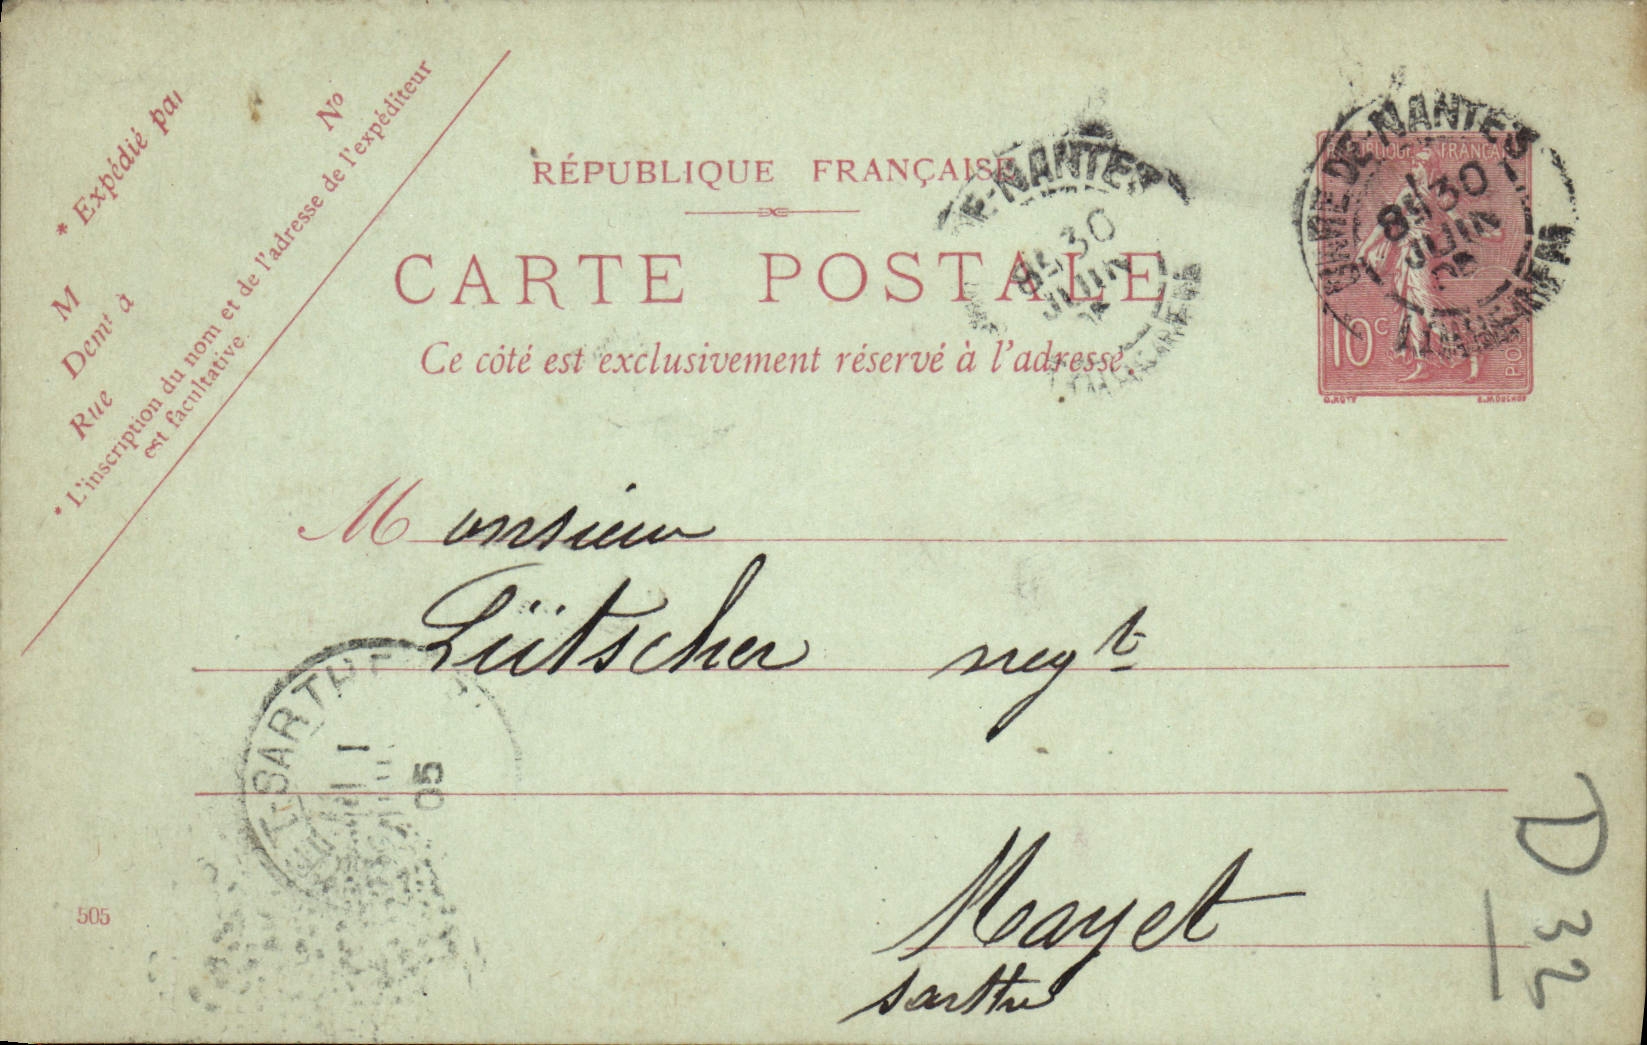 * Expédié par
No
M
Demt à
Rue
* L'inscription du nom et de l'adresse de l'expéditeur
est facultative.
RÉPUBLIQUE FRANÇAISE
CARTE POSTALE
Ce côté est exclusivement réservé à l'adresse.
E-NANTES
30
JUIN
DE-NANTES
8 30
JUIN
RÉPUBLIQUE FRANÇAISE
10c
Monsieur
Lütscher negt
Mayet
sarthe
T-SARTHE
1
05
505
D 32